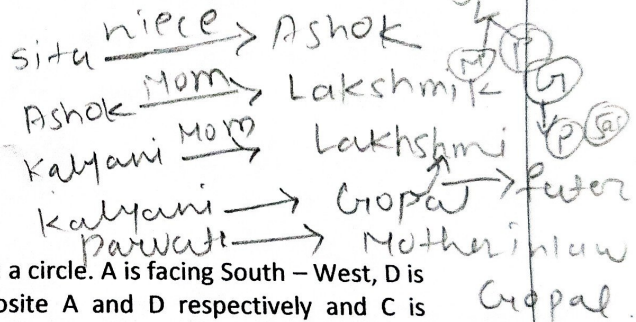 Sita niece → Ashok
Ashok Mom → Lakshmi
Kalyani Mom → Lakhshmi
Kalyani → Gopal → futer
Parvati → Mother in law
Gopal
M P
G
P
a circle. A is facing South – West, D is
osite A and D respectively and C is